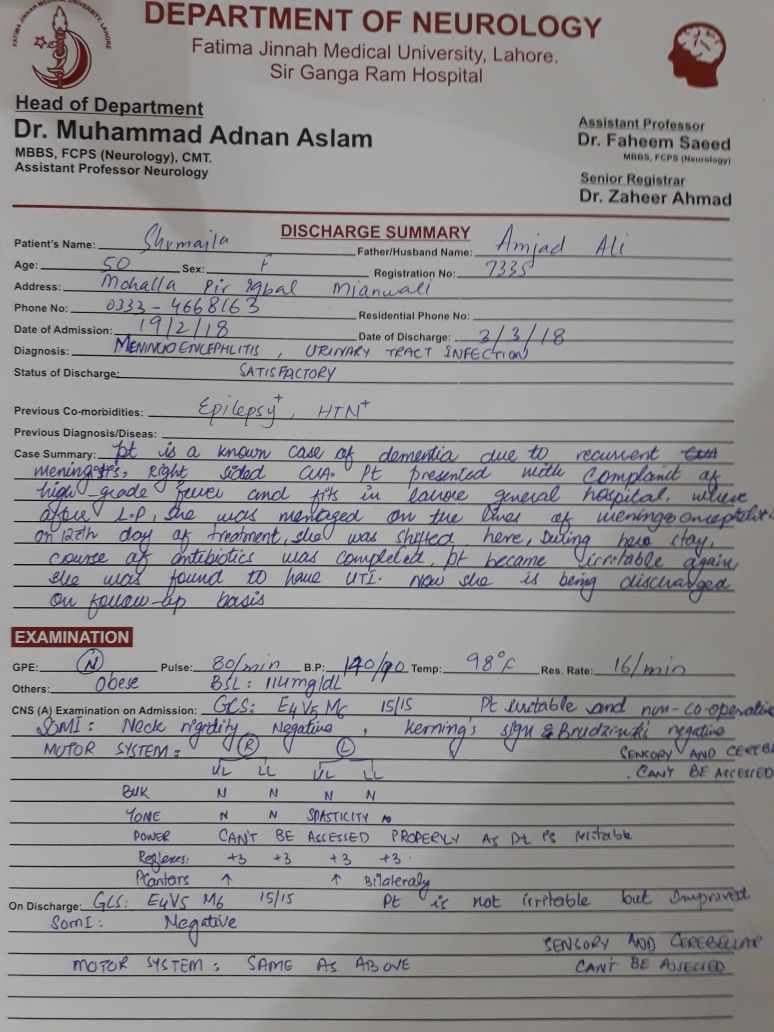 FATIMA JINNAH MEDICAL UNIVERSITY, LAHORE
DEPARTMENT OF NEUROLOGY
Fatima Jinnah Medical University, Lahore.
Sir Ganga Ram Hospital
Head of Department
Dr. Muhammad Adnan Aslam
MBBS, FCPS (Neurology), CMT.
Assistant Professor Neurology
Assistant Professor
Dr. Faheem Saeed
MBBS, FCPS (Neurology)
Senior Registrar
Dr. Zaheer Ahmad
DISCHARGE SUMMARY
Patient's Name: Shumaila Father/Husband Name: Amjad Ali
Age: 50 Sex: F Registration No: 7335
Address: Mohalla Pir Iqbal Mianwali
Phone No: 0333-4668163 Residential Phone No:
Date of Admission: 19/2/18 Date of Discharge: 3/3/18
Diagnosis: MENINGOENCEPHLITIS, URINARY TRACT INFECTION
Status of Discharge: SATISFACTORY
Previous Co-morbidities: Epilepsy+, HTN+
Previous Diagnosis/Diseas:
Case Summary: pt is a known case of dementia due to recurrent
right sided CVA. Pt presented with complaint of
high-grade fever and fits in lahore general hospital, where
after L.P, she was managed on the lines of
on 12th day of treatment, she was shifted here, During stay,
course of antibiotics was completed, pt became irritable again,
she was found to have UTI. Now she is being discharged
on follow-up basis
EXAMINATION
GPE: N Pulse: 80/min B.P: 140/90 Temp: 98°F Res. Rate: 16/min
Others: Obese BSL: 114mg/dL
CNS (A) Examination on Admission: GCS: E4V5M6 15/15 Pt irritable and non-co-operative
SOMI: Neck rigidity Negative, Kerning's sign & Brudzinki negative
MOTOR SYSTEM: R L SENSORY AND CEREB
UL LL UL LL . CAN'T BE ASSESSED
BULK N N N N
TONE N N SPASTICITY
POWER CAN'T BE ASSESSED PROPERLY AS Pt is irritable
Reflexes: +3 +3 +3 +3
Plantars ↑ ↑ Bilateraly
On Discharge: GCS: E4V5 M6 15/15 Pt is not irretable but Improved
SOMI: Negative
SENSORY AND CEREBELLAR
MOTOR SYSTEM: SAME AS ABOVE CAN'T BE ASSESSED